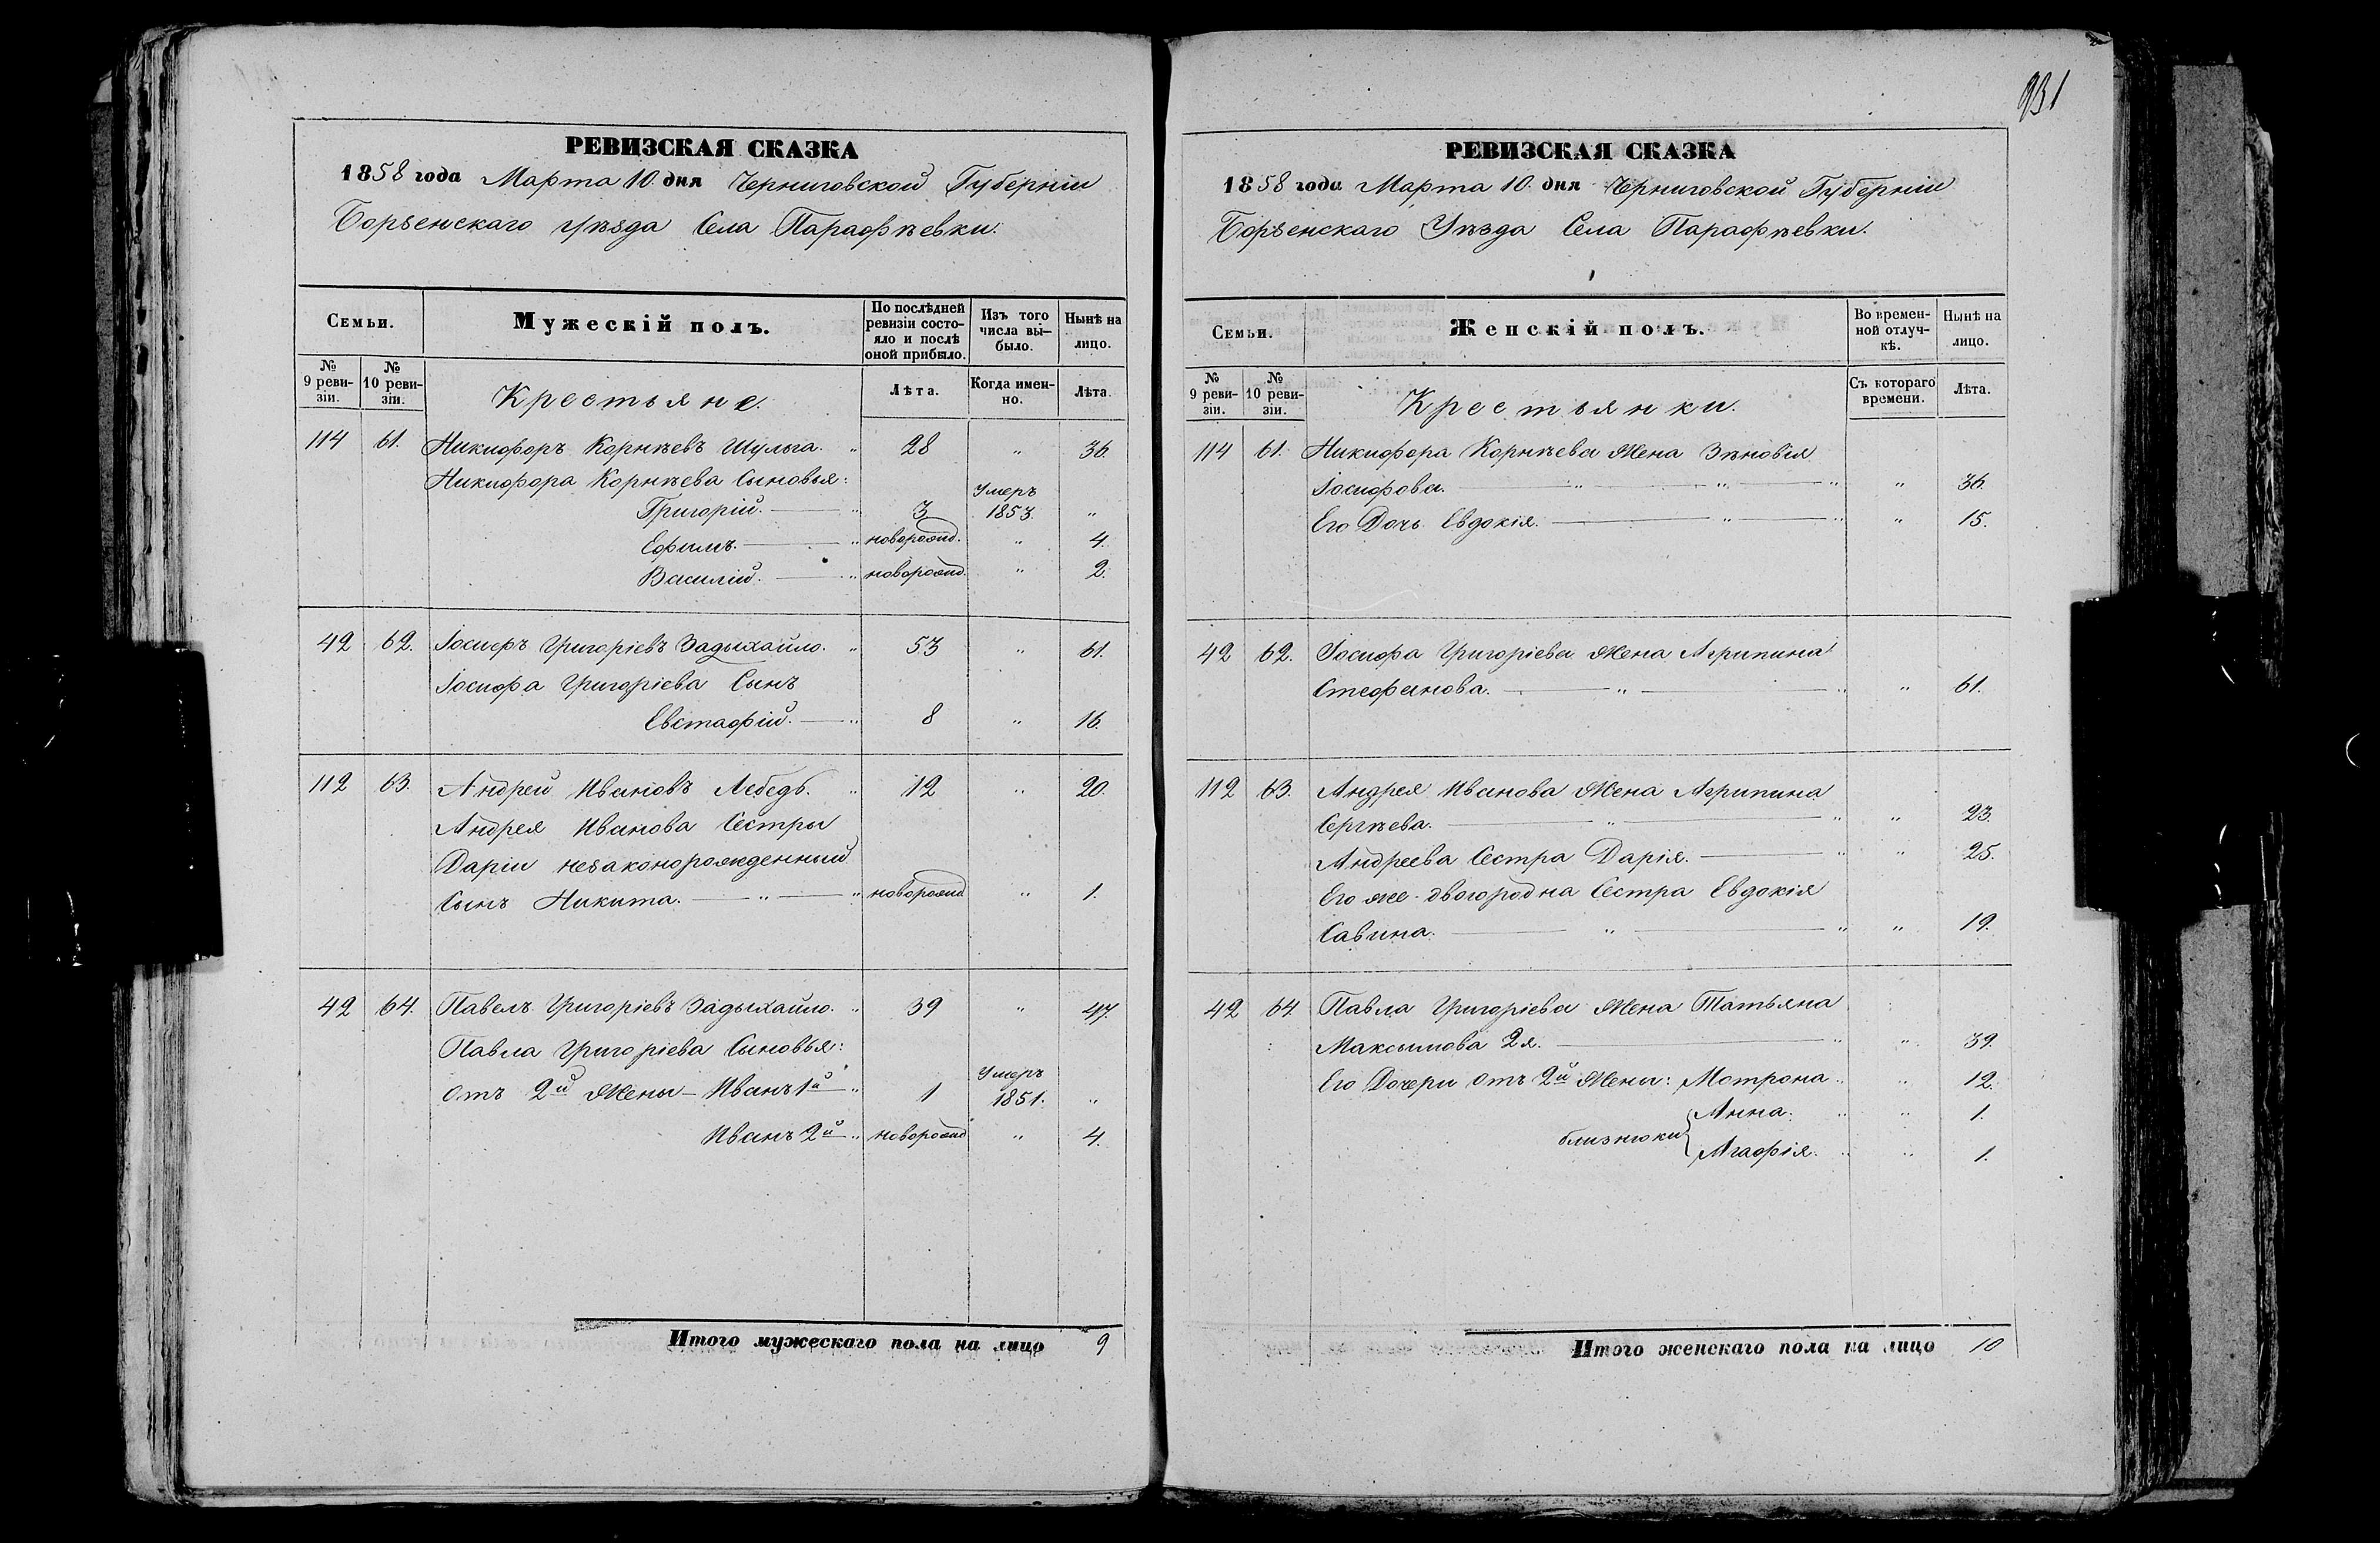 931
РЕВИЗСКАЯ СКАЗКА
1858 года Марта 10. дня Черниговской Губерніи
Борзенскаго уѣзда Села Парафѣевки.
Семьи. Мужескій полъ. По послѣдней ревизіи состояло и послѣ оной прибыло. Изъ того числа выбыло. Нынѣ на лицо.
№ 9 ревизіи. № 10 ревизіи. Крестьяне. Лѣта. Когда именно. Лѣта.
114 61. Никифоръ Корнѣевъ Шульга. " 28 " 36
Никифора Корнѣева Сыновья:
Григорій. " 3 Умеръ 1853. "
Ефимъ. " новорожд. " 4.
Василій. " новорожд. " 2.
42 62. Іосифъ Григоріевъ Задыхайло. " 53 " 61.
Іосифа Григоріева Сынъ
Евстафій. " 8 " 16.
112 63. Андрей Ивановъ Лебедь. " 12 " 20.
Андрея Иванова Сестры
Даріи незаконорожденный
Сынъ Никита. " " новорожд " 1.
42 64. Павелъ Григоріевъ Задыхайло. " 39 " 47.
Павла Григоріева Сыновья:
Отъ 2й Жены - Иванъ 1й " 1 Умеръ 1851. "
Иванъ 2й " новорожд " 4.
Итого мужескаго пола на лицо 9
РЕВИЗСКАЯ СКАЗКА
1858 года Марта 10. дня Черниговской Губерніи
Борзенскаго Уѣзда Села Парафѣевки.
Семьи. Женскій полъ. Во временной отлучкѣ. Нынѣ на лицо.
№ 9 ревизіи. № 10 ревизіи. Крестьянки. Съ котораго времени. Лѣта.
114 61. Никифора Корнѣева Жена Зѣновія
Іосифова. " " " " 36.
Его Дочь Евдокія. " " " 15.
42 62. Іосифа Григоріева Жена Агрипина
Стефанова. " " " 61.
112 63. Андрея Иванова Жена Агрипина
Сергѣева. " " " 23.
Андреева Сестра Дарія. " " 25.
Его же двогородна Сестра Евдокія
Савина. " " " 19.
42 64 Павла Григоріева Жена Татьяна
Максимова 2я. " " 39.
Его Дочери отъ 2й Жены: Мотрона " " 12.
Анна. " " 1.
близнюки
Агафія. " " 1.
Итого женскаго пола на лицо 10